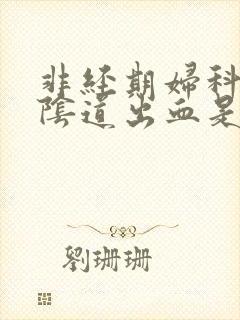 非经期婦科
陰道出血是
劉珊珊